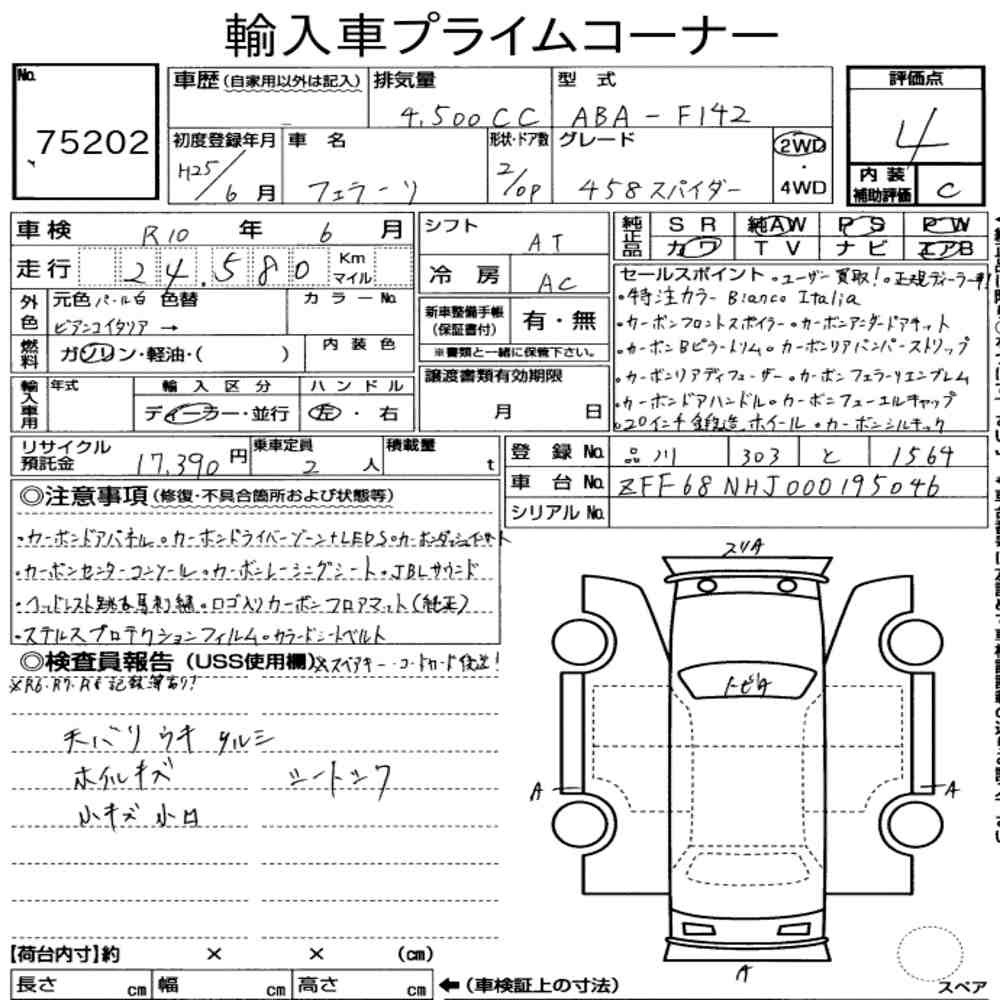 輸入車プライムコーナー
No. 75202
車歴 (自家用以外は記入)
排気量 4,500CC
型式 ABA-F142
評価点 4
初度登録年月 H25/6月
車名 フェラーリ
形状・ドア数 2/OP
グレード 458スパイダー
2WD・4WD
内装補助評価 C
車検 R10年 6月
走行 24.580 Km マイル
シフト AT
冷房 AC
純正品 SR 純AW PS PW
カワ TV ナビ エアB
外色 元色 パール白 色替 カラーNo.
ビアンコイタリア →
新車整備手帳(保証書付) 有・無
※書類と一緒に保管下さい。
燃料 ガソリン・軽油・( ) 内装色
輸入車用 年式 輸入区分 ディーラー・並行 ハンドル 左・右
譲渡書類有効期限 月 日
セールスポイント ・ユーザー買取! ・正規ディーラー車!
・特注カラー Bianco Italia
・カーボンフロントスポイラー ・カーボンアンダードアキット
・カーボンBピラートリム ・カーボンリアバンパーストリップ
・カーボンリアディフューザー ・カーボンフェラーリエンブレム
・カーボンドアハンドル ・カーボンフューエルキャップ
・20インチ鍛造ホイール ・カーボンシルキック
リサイクル預託金 17,390円
乗車定員 2人
積載量 t
登録No. 品川 303 と 1564
車台No. ZFF68NHJ000195046
シリアルNo.
◎注意事項 (修復・不具合箇所および状態等)
・カーボンドアパネル ・カーボンドライバーゾーン+LEDS ・カーボンダッシュインサート
・カーボンセンターコンソール ・カーボンレーシングシート ・JBLサウンド
・ヘッドレスト跳ね馬刺繍 ・ロゴ入りカーボンフロアマット(純正)
・ステルスプロテクションフィルム ・カラードシートベルト
◎検査員報告 (USS使用欄) ※スペアキー・コードカード後送!
※R6.R7.R8記録簿有り!
天バリ ウキ タルミ
ホイルキズ シートシワ
小キズ 小凹
スリA
トビA
A
A
A
スペア
【荷台内寸】約 × × (cm)
長さ cm 幅 cm 高さ cm ←(車検証上の寸法)